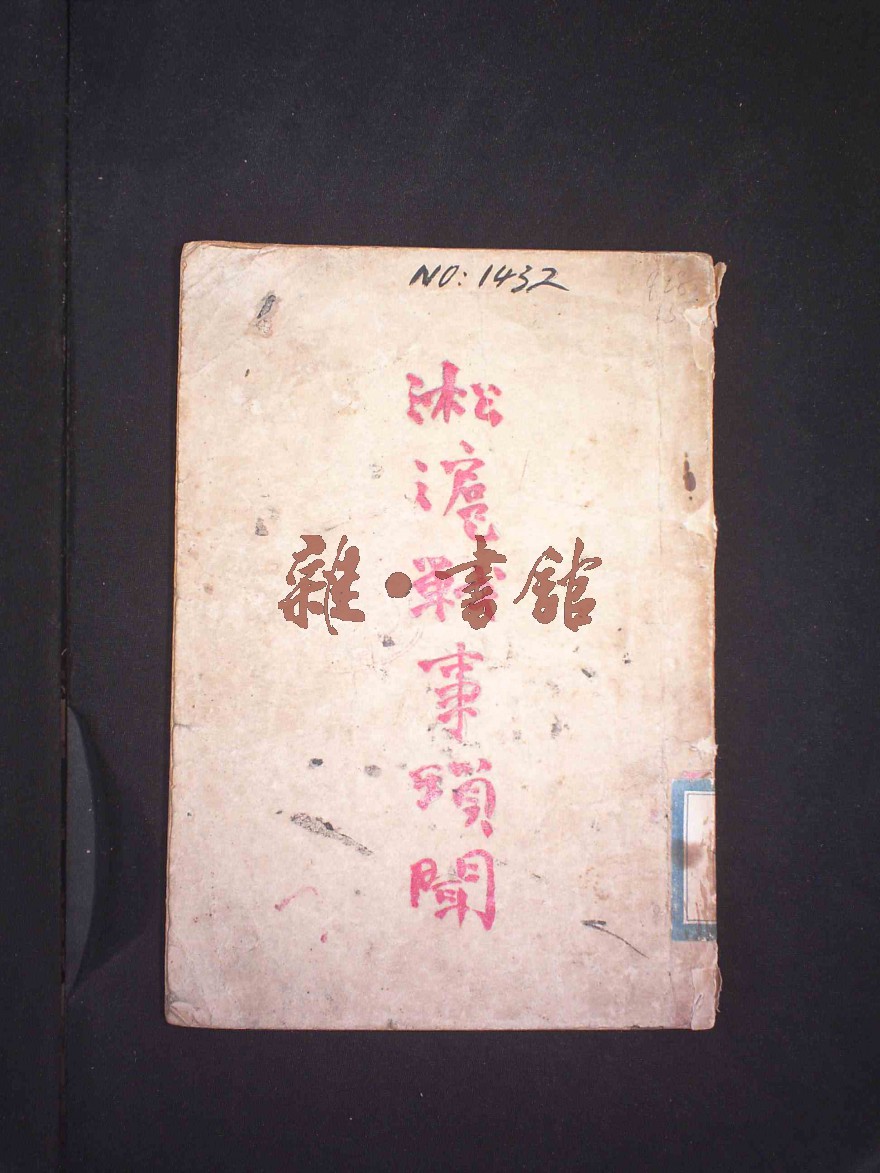 NO: 1432
淞滬戰事瑣聞
雜·書館